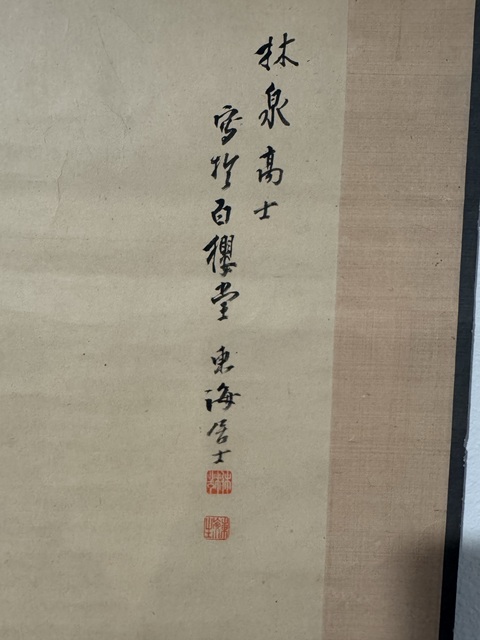 林泉高士
寫於百櫻堂 東海居士